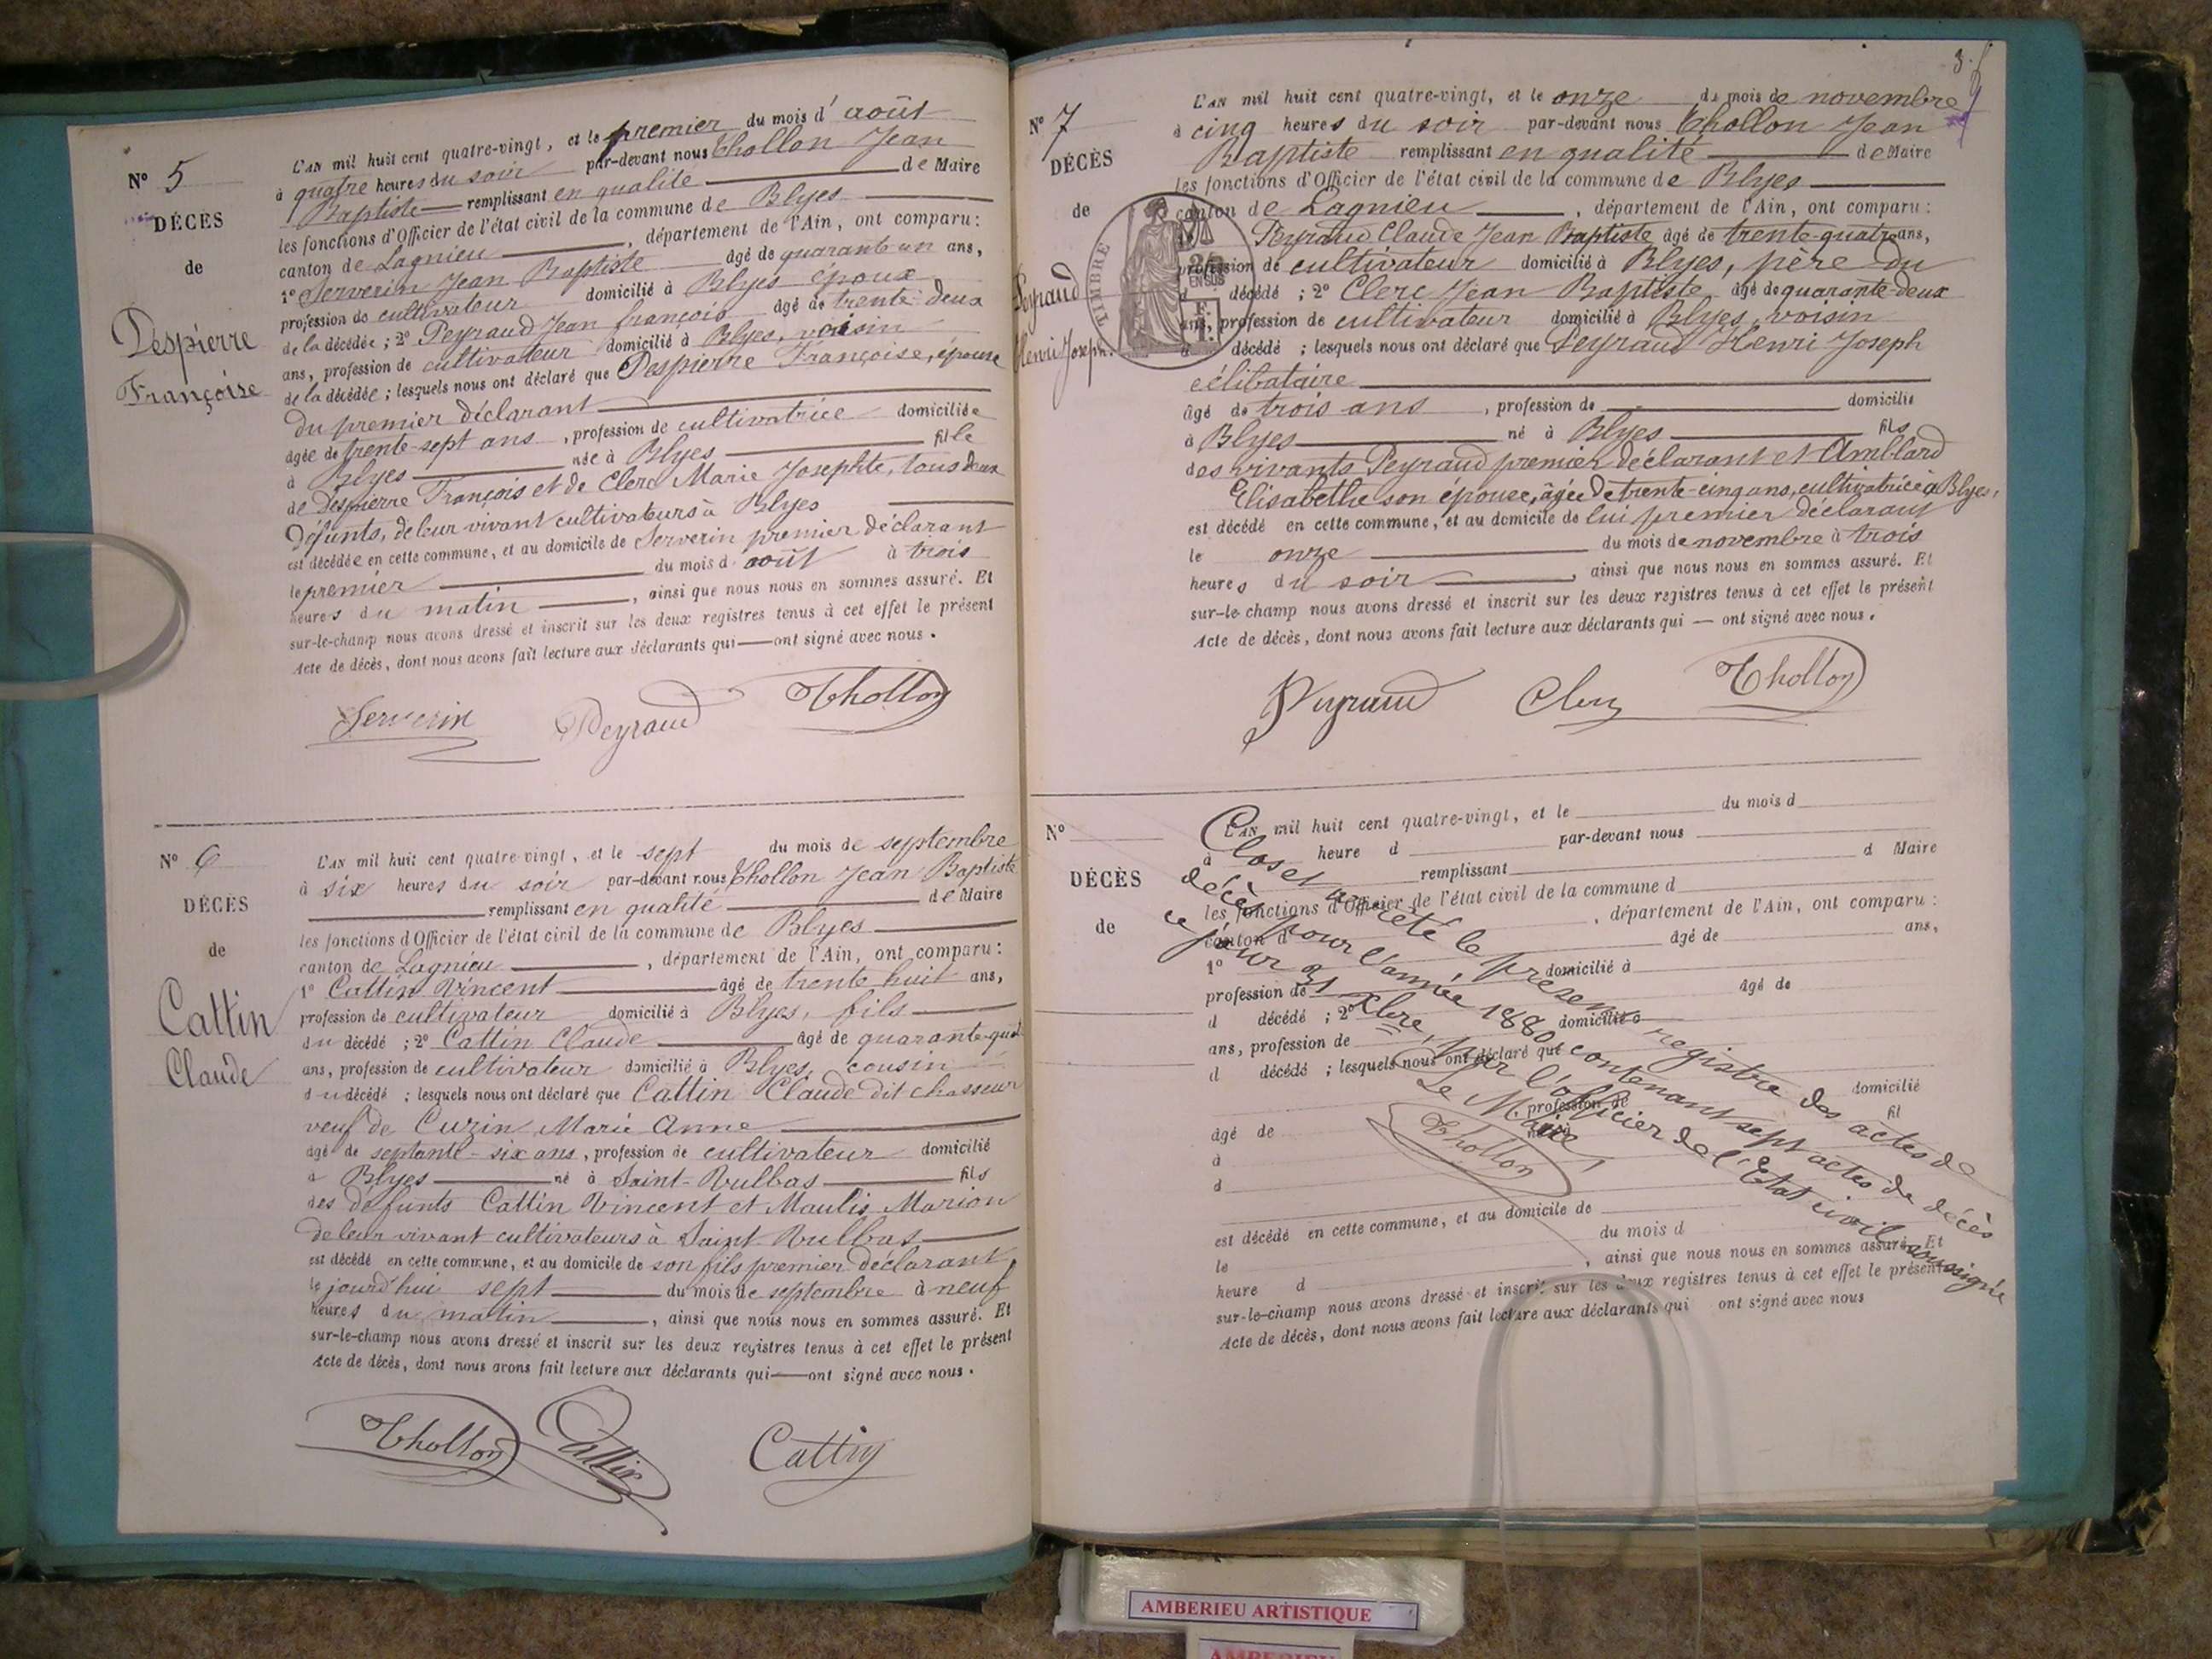 N° 5
DÉCÈS
de
Despierre
Françoise
L'AN mil huit cent quatre-vingt, et le premier du mois d'août
à quatre heures du soir par-devant nous Thollon Jean
Baptiste remplissant en qualité de Maire
les fonctions d'Officier de l'état civil de la commune de Blyes
canton de Lagnieu, département de l'Ain, ont comparu :
1° Serverin Jean Baptiste âgé de quarante un ans,
profession de cultivateur domicilié à Blyes époux
de la décédée ; 2° Peyraud Jean françois âgé de trente deux
ans, profession de cultivateur domicilié à Blyes, voisin
de la décédée ; lesquels nous ont déclaré que Despierre Françoise, épouse
du premier déclarant
âgée de trente-sept ans, profession de cultivatrice domiciliée
à Blyes née à Blyes fille
de Despierre François et de Clerc Marie Josephte, tous deux
défunts, de leur vivant cultivateurs à Blyes
est décédée en cette commune, et au domicile de Serverin premier déclarant
le premier du mois d'août à trois
heures du matin, ainsi que nous nous en sommes assuré. Et
sur-le-champ nous avons dressé et inscrit sur les deux registres tenus à cet effet le présent
Acte de décès, dont nous avons fait lecture aux déclarants qui — ont signé avec nous.
Serverin Peyraud Thollon
N° 6
DÉCÈS
de
Cattin
Claude
L'AN mil huit cent quatre-vingt, et le sept du mois de septembre
à six heures du soir par-devant nous Thollon Jean Baptiste
remplissant en qualité de Maire
les fonctions d'Officier de l'état civil de la commune de Blyes
canton de Lagnieu, département de l'Ain, ont comparu :
1° Cattin Vincent âgé de trente huit ans,
profession de cultivateur domicilié à Blyes, fils
du décédé ; 2° Cattin Claude âgé de quarante-quat
ans, profession de cultivateur domicilié à Blyes, cousin
du décédé ; lesquels nous ont déclaré que Cattin Claude dit chasseur
veuf de Cuzin Marie Anne
âgé de septante-six ans, profession de cultivateur domicilié
à Blyes né à Saint-Vulbas fils
des défunts Cattin Vincent et Maulis Marion
de leur vivant cultivateurs à Saint-Vulbas
est décédé en cette commune, et au domicile de son fils premier déclarant
le jourd'hui sept du mois de septembre à neuf
heures du matin, ainsi que nous nous en sommes assuré. Et
sur-le-champ nous avons dressé et inscrit sur les deux registres tenus à cet effet le présent
Acte de décès, dont nous avons fait lecture aux déclarants qui — ont signé avec nous.
Thollon Cattin Cattin
8.
N° 7
DÉCÈS
de
Peyraud
Henri Joseph.
TIMBRE
L'AN mil huit cent quatre-vingt, et le onze du mois de novembre
à cinq heures du soir par-devant nous Thollon Jean
Baptiste remplissant en qualité de Maire
les fonctions d'Officier de l'état civil de la commune de Blyes
canton de Lagnieu, département de l'Ain, ont comparu :
Peyraud Claude Jean Baptiste âgé de trente-quatre ans,
profession de cultivateur domicilié à Blyes, père du
décédé ; 2° Clerc Jean Baptiste âgé de quarante-deux
ans, profession de cultivateur domicilié à Blyes, voisin
d décédé ; lesquels nous ont déclaré que Peyraud Henri Joseph
célibataire
âgé de trois ans, profession de domicilié
à Blyes né à Blyes fils
des vivants Peyraud premier déclarant et Amblard
Elisabethe son épouse, âgée de trente-cinq ans, cultivatrice à Blyes,
est décédé en cette commune, et au domicile de lui premier déclarant
le onze du mois de novembre à trois
heures du soir, ainsi que nous nous en sommes assuré. Et
sur-le-champ nous avons dressé et inscrit sur les deux registres tenus à cet effet le présent
Acte de décès, dont nous avons fait lecture aux déclarants qui — ont signé avec nous.
Peyraud Clerc Thollon
N°
DÉCÈS
de
L'AN mil huit cent quatre-vingt, et le du mois d
à heure d par-devant nous
remplissant d Maire
les fonctions d'Officier de l'état civil de la commune d
canton d, département de l'Ain, ont comparu :
1° âgé de ans,
profession de domicilié à
d décédé ; 2° âgé de
ans, profession de domicilié à
d décédé ; lesquels nous ont déclaré que
âgé de profession de domicilié
à né à fil
d
est décédé en cette commune, et au domicile de
le du mois d
heure d, ainsi que nous nous en sommes assuré. Et
sur-le-champ nous avons dressé et inscrit sur les deux registres tenus à cet effet le présent
Acte de décès, dont nous avons fait lecture aux déclarants qui ont signé avec nous
Clos et arrêté le présent registre des actes de
décès pour l'année 1880 contenant sept actes de décès
ce jour 31 Xbre, par l'officier de l'Etat civil soussigné
Le Maire,
Thollon
AMBERIEU ARTISTIQUE
AMBERIEU